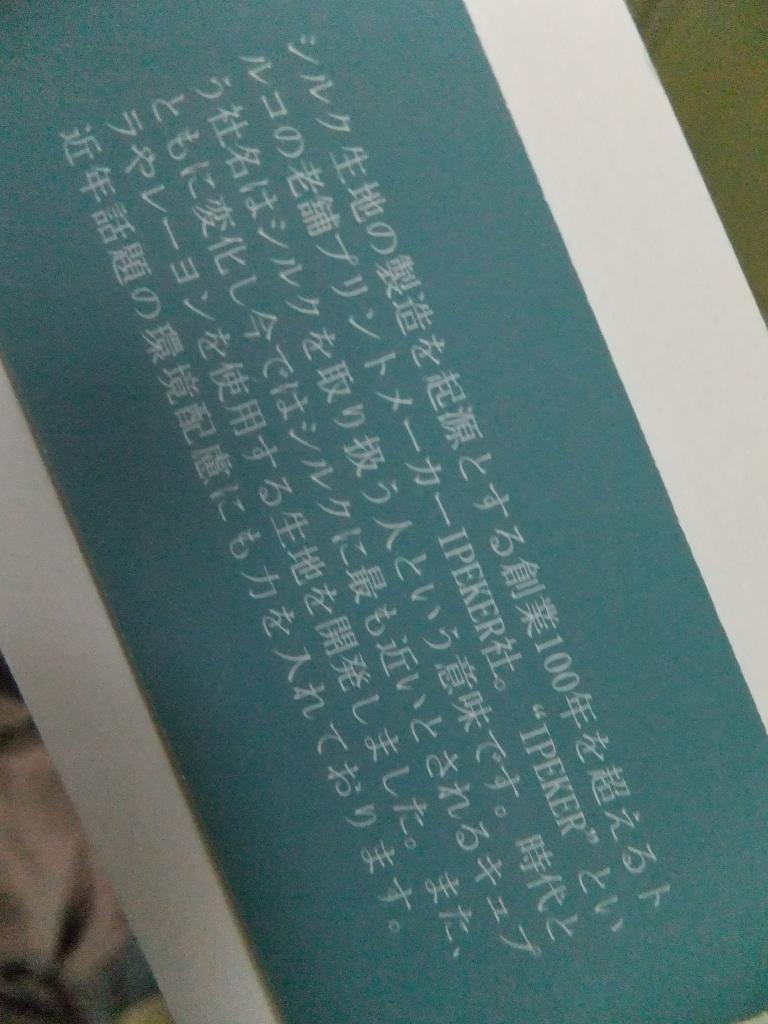 シルク生地の製造を起源とする創業100年を超えるト
ルコの老舗プリントメーカーIPEKER社。 “IPEKER” とい
う社名はシルクを取り扱う人という意味です。 時代と
ともに変化し今ではシルクに最も近いとされるキュプ
ラやレーヨンを使用する生地を開発しました。また、
近年話題の環境配慮にも力を入れております。